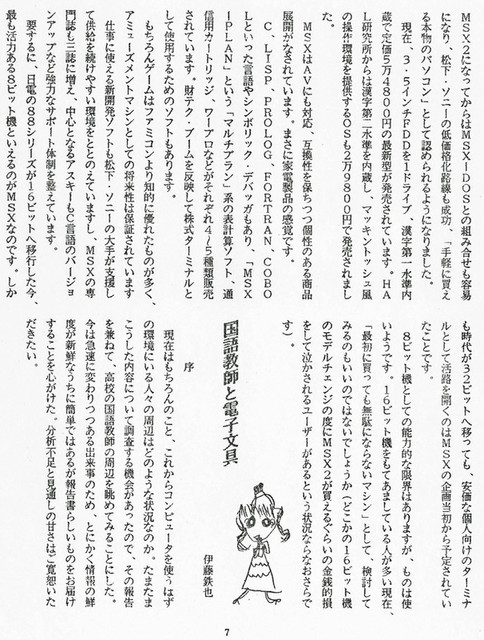 MSX2になってからはMSX-DOSとの組み合せも容易
になり、松下・ソニーの低価格化路線も成功、「手軽に買え
る本物のパソコン」として認められるようになりました。
現在、3.5インチFDDを1ドライブ、漢字第一水準内
蔵で定価5万4800円の最新型が発売されています。HA
L研究所からは漢字第二水準を内蔵し、マッキントッシュ風
の操作環境を提供するOSも2万9800円で発売されまし
た。
MSXはAVにも対応、互換性を保ちつつ個性のある商品
展開がなされています。まさに家電製品の感覚です。
C、LISP、PROLOG、FORTRAN、COBO
Lといった言語やシンボリック・デバッガもあり、「MSX
-PLAN」という「マルチプラン」系の表計算ソフト、通
信用カートリッジ、ワープロなどがそれぞれ4~5種類販売
されています。財テク・ブームを反映して株式ターミナルと
して使用するためのソフトもあります。
もちろんゲームはファミコンより知的に優れたものが多く、
アミューズメントマシンとしての将来性は保証されています
仕事に使える新開発ソフトも松下・ソニーの大手が支援し
て供給を続けやすい環境をととのえていますし、MSXの専
門誌も三誌に増え、中心となるアスキーもC言語のバージョ
ンアップなど強力なサポート体制を整えています。
要するに、日電の88シリーズが16ビットへ移行した今、
最も活力ある8ビット機といえるのがMSXなのです。しか
も時代が32ビットへ移っても、安価な個人向けのターミナ
ルとして活路を開くのはMSXの企画当初から予定されてい
たことです。
8ビット機としての能力的な限界はありますが、ものは使
いようです。16ビット機をもてあましている人が多い現在、
「最初に買っても無駄にならないマシン」として、検討して
みるのもいいのではないでしょうか(どこかの16ビット機
のモデルチェンジの度にMSX2が買えるぐらいの金銭的損
をして泣かされるユーザーがあるという状況ならなおさらで
す)。
国語教師と電子文具
伊藤鉄也
序
現在はもちろんのこと、これからコンピュータを使うはず
の環境にいる人々の周辺はどのような状況なのか。たまたま
こうした内容について調査する機会があったので、その報告
を兼ねて、高校の国語教師の周辺を眺めてみることにした。
今は急速に変わりつつある出来事のため、とにかく情報の鮮
度が新鮮なうちに簡単ではあるが報告書らしいものをお届け
することを心がけた。分析不足と見通しの甘さはご寛恕いた
だきたい。
7